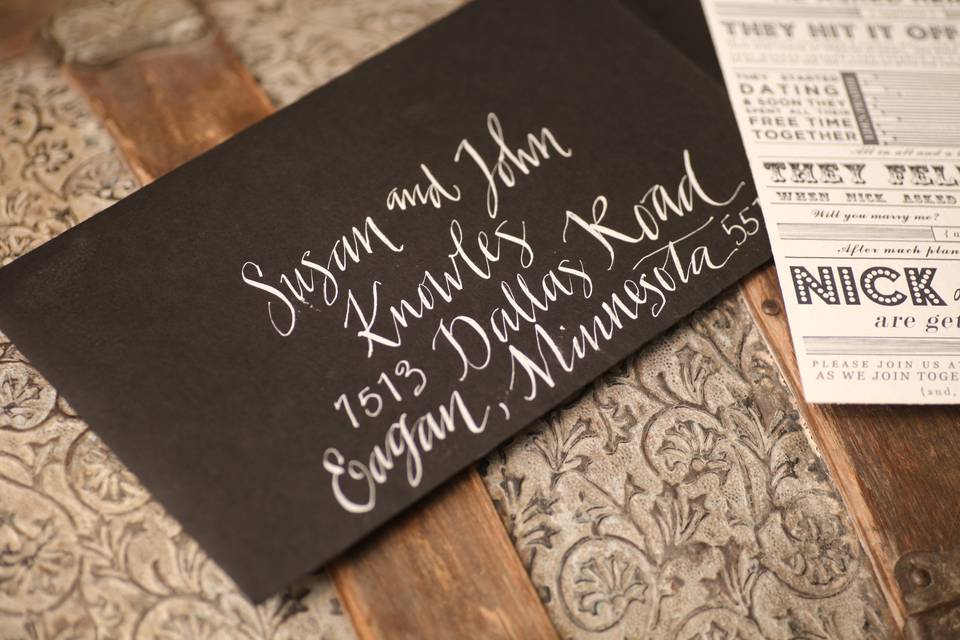 Susan and John
Knowles
7513 Dallas Road
Eagan, Minnesota 55
THEY HIT IT OFF
THEY STARTED
DATING
& SOON THEY
SPENT ALL THEIR
FREE TIME
TOGETHER
All in all and a
THEY FEL
WHEN NICK ASKED
Will you marry me?
After much plan
NICK
are get
PLEASE JOIN US A
AS WE JOIN TOGE
{and,